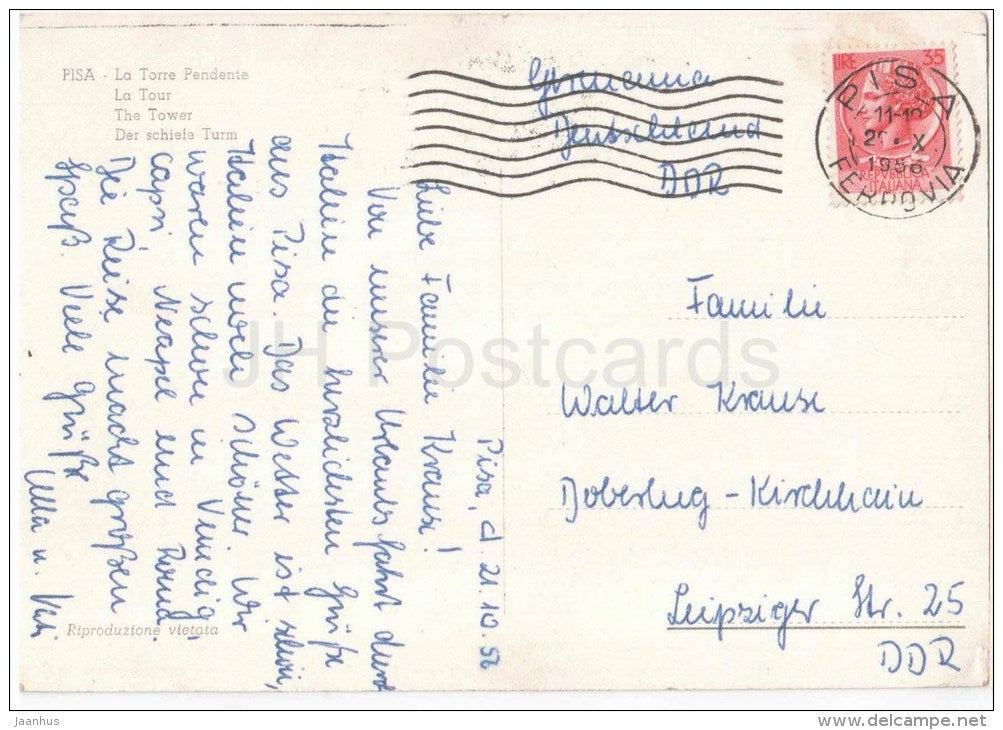 PISA - La Torre Pendente
La Tour
The Tower
Der schiefe Turm
Germania
Deutschland
DDR
LIRE 35
REPUBBLICA
ITALIANA
PISA
11-12
X
1956
FERROVIA
Pisa, d. 21.10.56
Liebe Familie Krause!
Von unserer Urlaubsfahrt durch
Italien die herzlichsten Grüße
aus Pisa. Das Wetter ist schön,
Italien noch schöner. Wir
waren schon in Venedig,
Capri, Neapel und Rom.
Die Reise macht großen
Spaß Viele Grüße
u.
Familie
Walter Krause
Doberlug-Kirchhain
Leipziger Str. 25
DDR
Riproduzione vietata
JH Postcards
jaanhus
www.delcampe.net